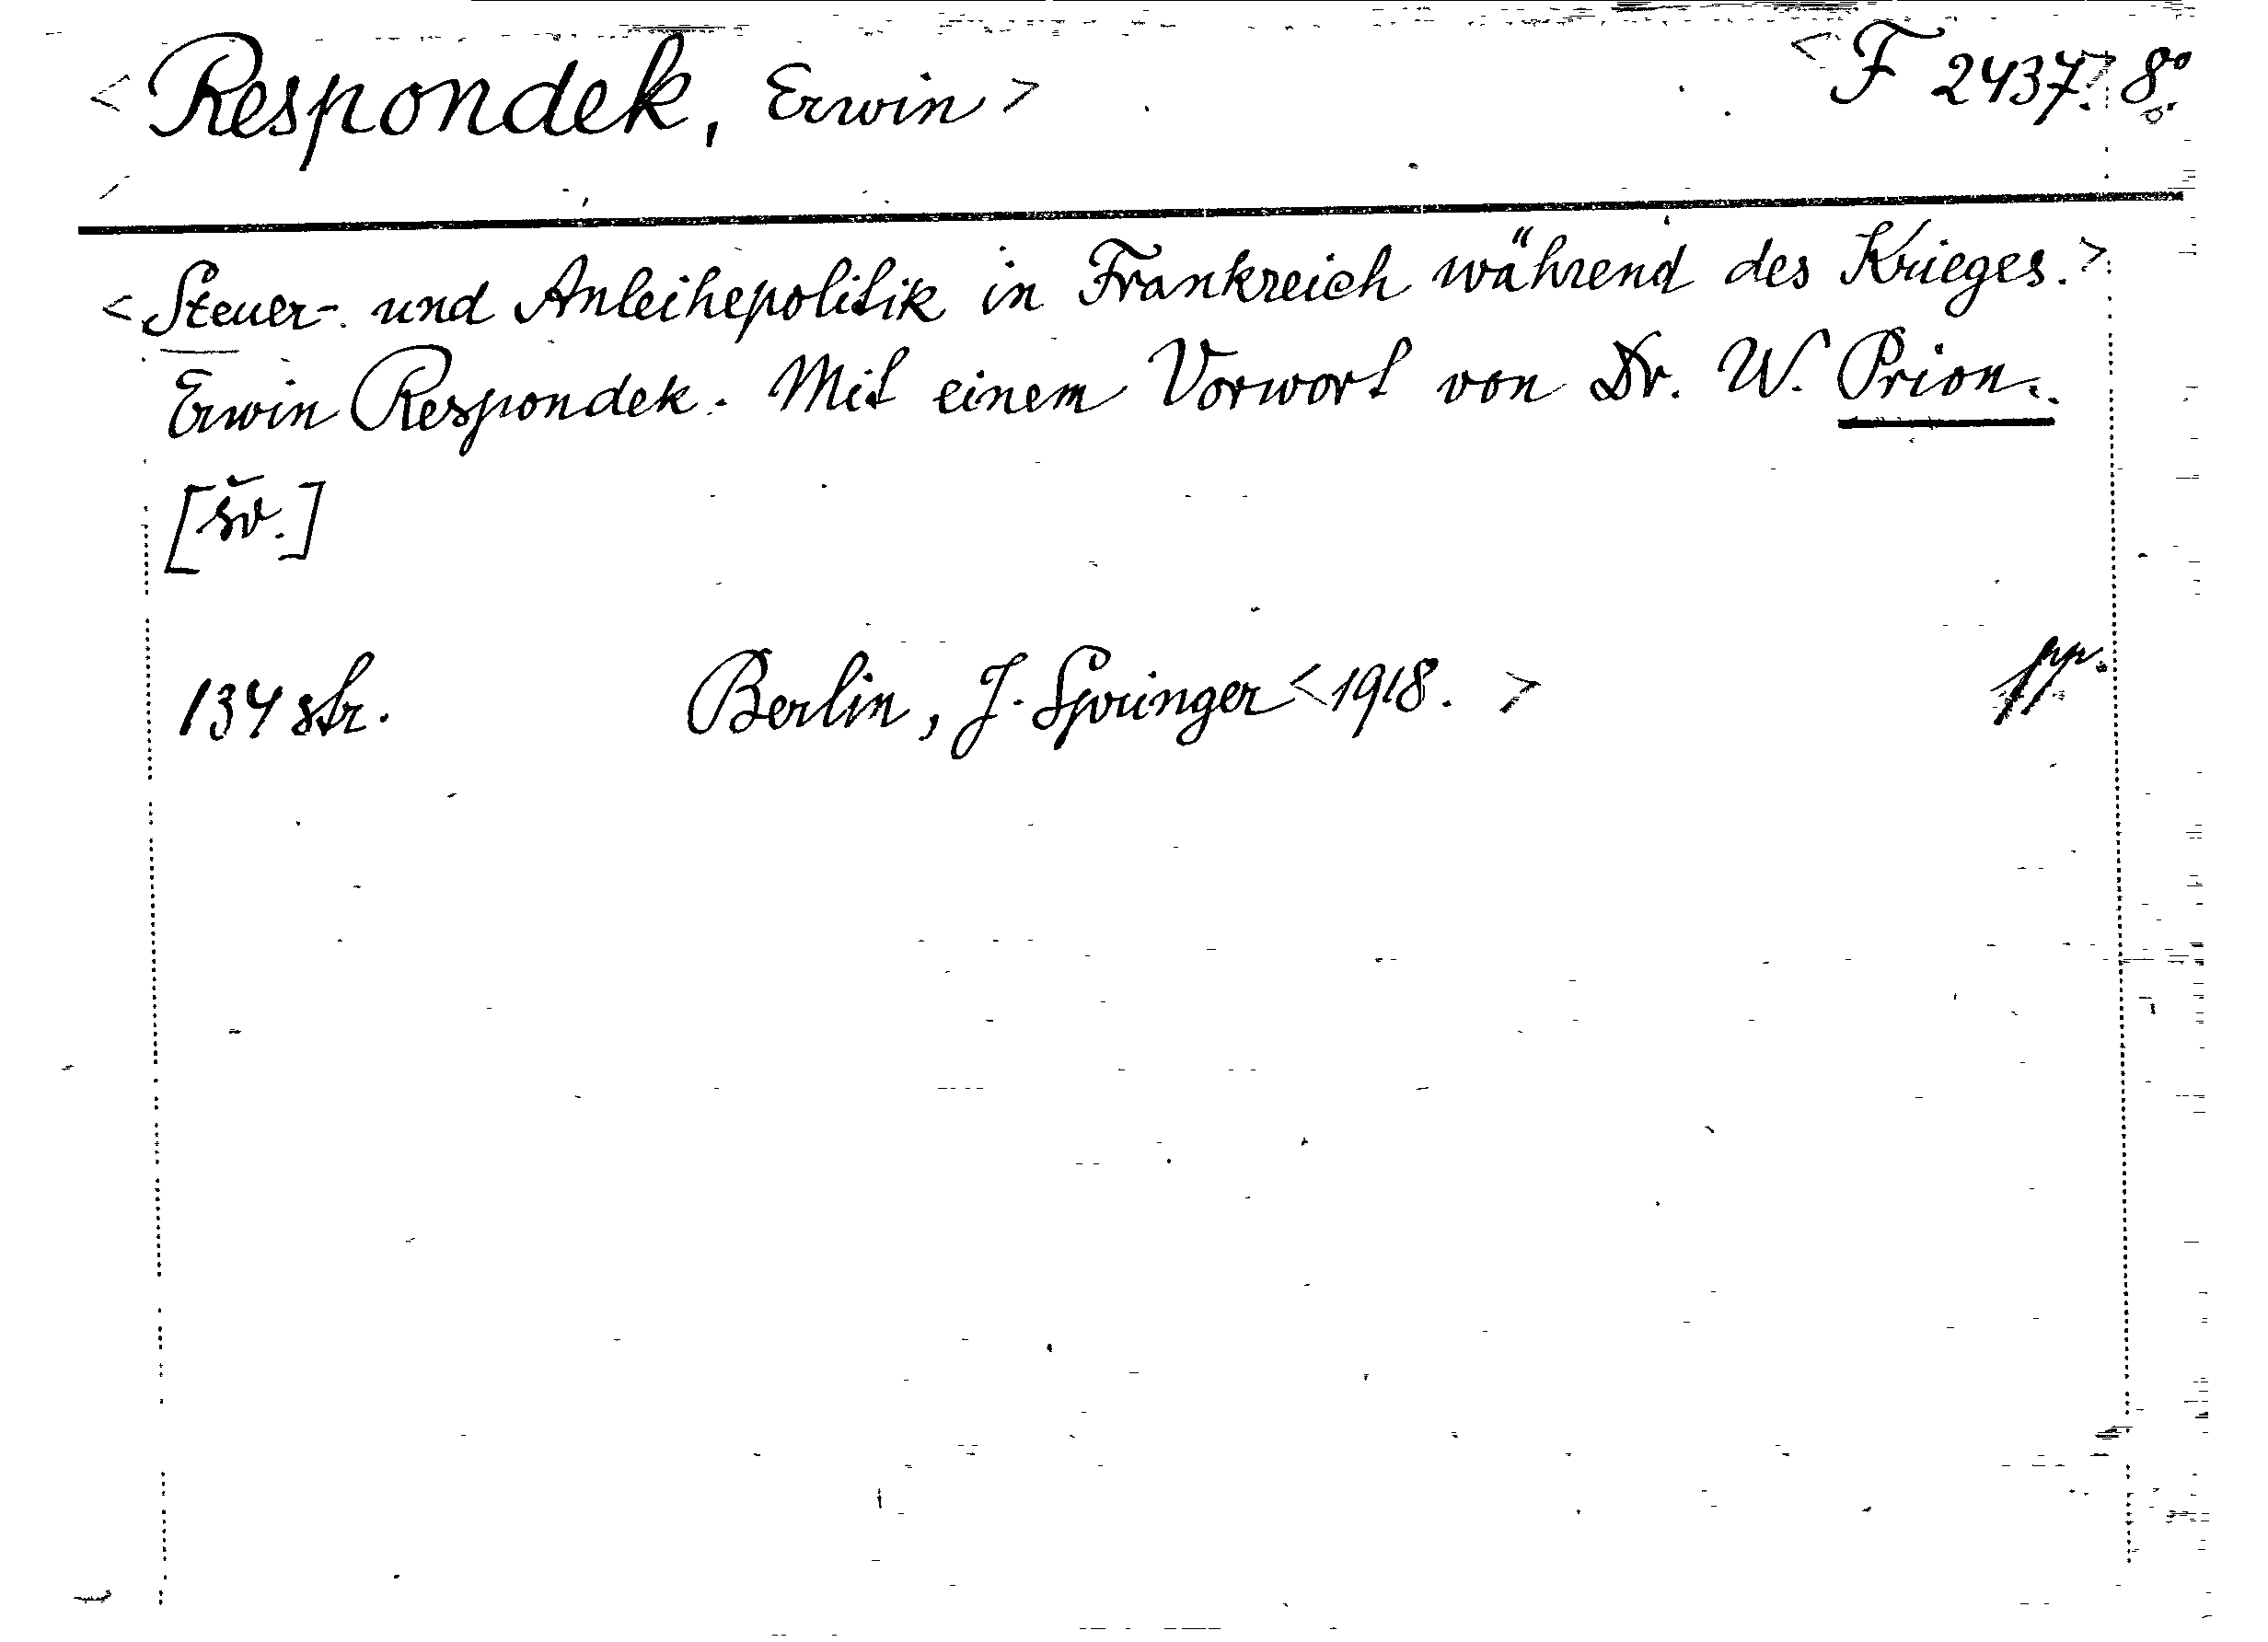 < Respondek, Erwin > < F 2437. > 8°.
< Steuer- und Anleihepolitik in Frankreich während des Krieges. >
Erwin Respondek. Mit einem Vorwort von Dr. W. Prion.
[šv.]
134 str. Berlin, J. Springer < 1918. > pp.